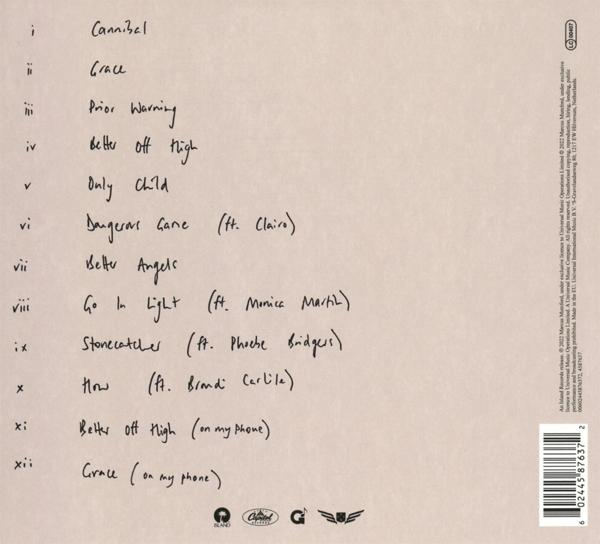 i Cannibal
ii Grace
iii Prior Warning
iv Better Off High
v Only Child
vi Dangerous Game (ft. Clairo)
vii Better Angels
viii Go In Light (ft. Monica Martin)
ix Stonecatcher (ft. Phoebe Bridgers)
x How (ft. Brandi Carlile)
xi Better Off High (on my phone)
xii Grace (on my phone)
ISLAND
Capitol
RECORDS
LC 00407
An Island Records release. ℗ 2022 Marcus Mumford, under exclusive licence to Universal Music Operations Limited © 2022 Marcus Mumford, under exclusive
licence to Universal Music Operations Limited. A Universal Music Company. All rights reserved. Unauthorised copying, reproduction, hiring, lending, public
performance and broadcasting prohibited. Made in the EU. Universal International Music B.V. 's-Gravelandseweg 80, 1217 EW Hilversum, Netherlands.
00602445876372, 4587637
6 02445 87637 2